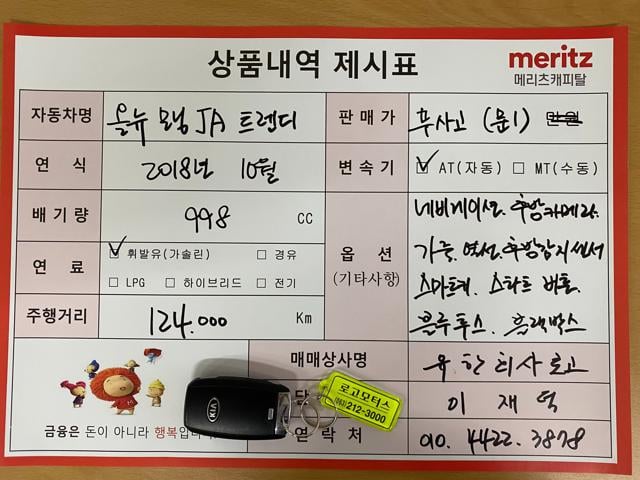 상품내역 제시표
meritz
메리츠캐피탈
자동차명 올뉴 모닝 JA 트렌디
판매가 무사고 (문1) 만원
연식 2018년 10월
변속기 ☑ AT(자동) ☐ MT(수동)
배기량 998 CC
옵션
(기타사항)
네비게이션. 후방카메라.
가죽. 열선. 후방감지센서
스마트키. 스타트 버튼.
블루투스. 블랙박스
연료 ☑ 휘발유(가솔린) ☐ 경유
☐ LPG ☐ 하이브리드 ☐ 전기
주행거리 124.000 Km
매매상사명 유한회사 로고
담 이재덕
연락처 010. 4422. 3878
금융은 돈이 아니라 행복입니
KIA
로고모터스
(063)212-3000